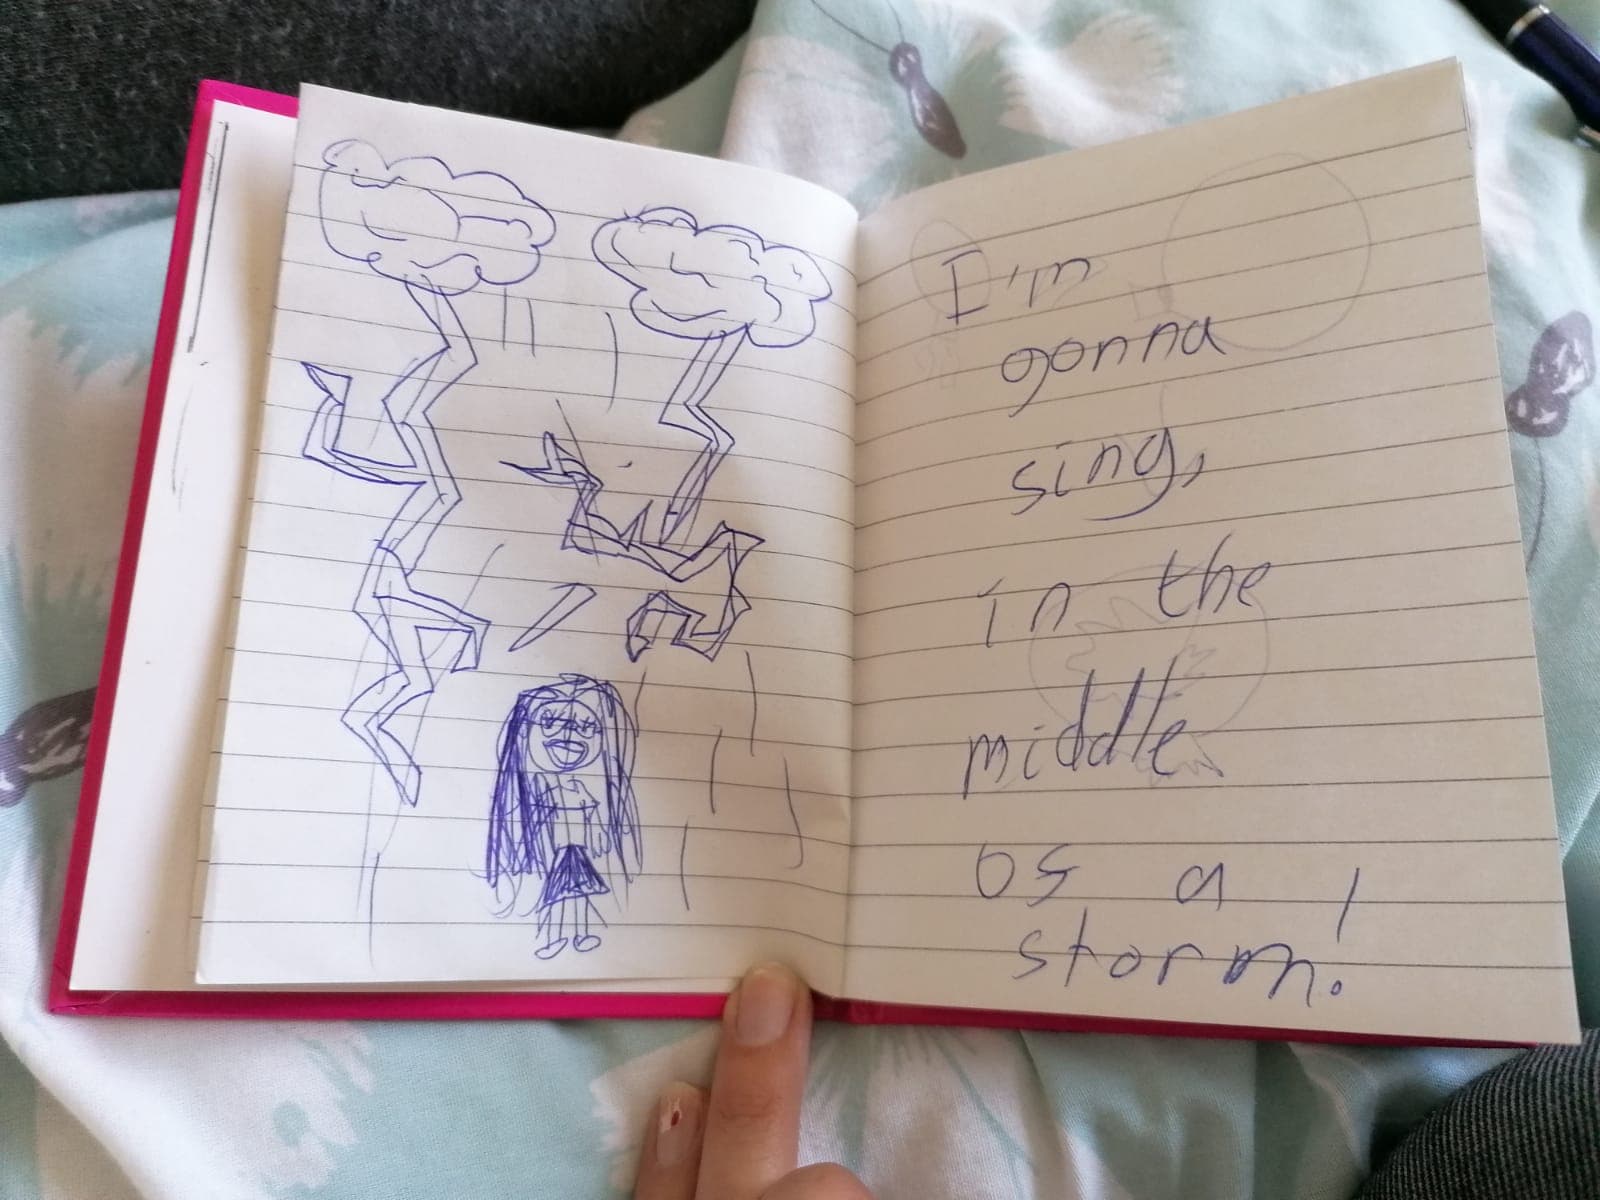 I'm
gonna
sing,
in the
middle
os a
storm!